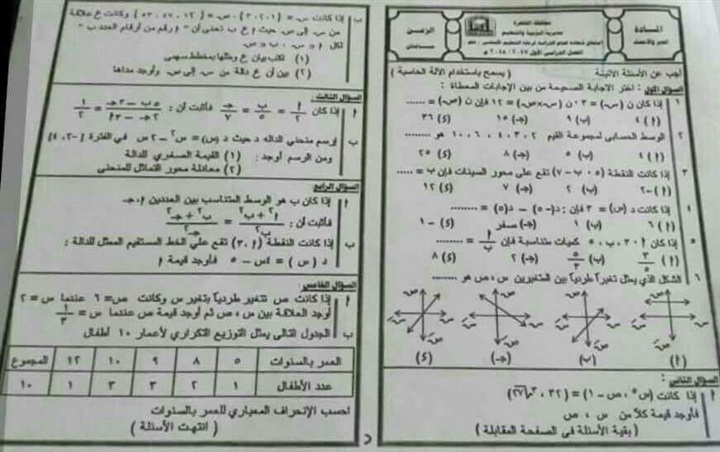 محافظة القاهرة
مديرية التربية والتعليم
امتحان شهادة إتمام الدراسة لمرحلة التعليم الأساسي
الفصل الدراسي الأول ٢٠١٧ / ٢٠١٨ م
المادة
الجبر والإحصاء
الزمن
ساعتان
أجب عن الأسئلة الآتية : ( يسمح باستخدام الآلة الحاسبة )
السؤال الأول : اختر الإجابة الصحيحة من بين الإجابات المعطاة :
١ إذا كان ن (س) = ٣ ، ن (س × ص) = ١٢ فإن ن (ص) = ......
(أ) ٤ (ب) ٩ (جـ) ١٥ (د) ٣٦
٢ الوسط الحسابي لمجموعة القيم ٢ ، ٣ ، ٤ ، ٦ ، ١٠ هو ......
(أ) ٤ (ب) ٥ (جـ) ٨ (د) ٢٥
٣ إذا كانت النقطة (٥ ، ب - ٧) تقع على محور السينات فإن ب = ......
(أ) -٢ (ب) ٢ (جـ) ٧ (د) ١٢
٤ إذا كانت د (س) = ٣ فإن : د(-٥) - د(٥) = ......
(أ) ٦ (ب) ١ (جـ) صفر (د) -١
٥ إذا كان أ ، ٣ ، ب ، ٥ كميات متناسبة فإن أ/ب = ......
(أ) ٣/٥ (ب) ٥/٣ (جـ) ٢ (د) ٨
٦ الشكل الذي يمثل تغيراً طردياً بين المتغيرين س ، ص هو ......
(أ) (ب) (جـ) (د)
السؤال الثاني :
أ إذا كانت (س⁵ ، ص - ١) = (٣٢ ، ∛٢٧)
فأوجد قيمة كلاً من س ، ص
( بقية الأسئلة في الصفحة المقابلة )
ب إذا كانت س = { ١ ، ٢ ، ٣ } ، ص = { ١٢ ، ٤٧ ، ٥٣ } وكانت ع علاقة
من س إلى ص حيث أ ع ب تعني أن " أ رقم من أرقام العدد ب "
لكل أ ∈ س ، ب ∈ ص
(١) اكتب بيان ع ومثلها بمخطط سهمي
(٢) بين أن ع دالة من س إلى ص وأوجد مداها
السؤال الثالث :
أ إذا كان أ/٢ = ب/٥ = جـ/٧ فأثبت أن :
ب ارسم منحنى الدالة د حيث د (س) = س² - ٢س في الفترة [-٢ ، ٤]
ومن الرسم أوجد : (١) القيمة الصغرى للدالة
(٢) معادلة محور التماثل للمنحنى
السؤال الرابع
أ إذا كان ب هو الوسط المتناسب بين العددين أ ، جـ
فأثبت أن : (أ² + ب²)/ب² = (ب² + جـ²)/جـ²
ب إذا كانت النقطة (أ ، ٣) تقع على الخط المستقيم الممثل للدالة :
د (س) = ٤س - ٥ فأوجد قيمة أ
السؤال الخامس :
أ إذا كانت ص تتغير طردياً بتغير س وكانت ص = ٦ عندما س = ٢
أوجد العلاقة بين س ، ص ثم أوجد قيمة ص عندما س = ١/٣
ب الجدول التالى يمثل التوزيع التكراري لأعمار ١٠ أطفال
العمر بالسنوات ٥ ٨ ٩ ١٠ ١٢ المجموع
عدد الأطفال ١ ٢ ٣ ٣ ١ ١٠
احسب الإنحراف المعياري للعمر بالسنوات
( انتهت الأسئلة )